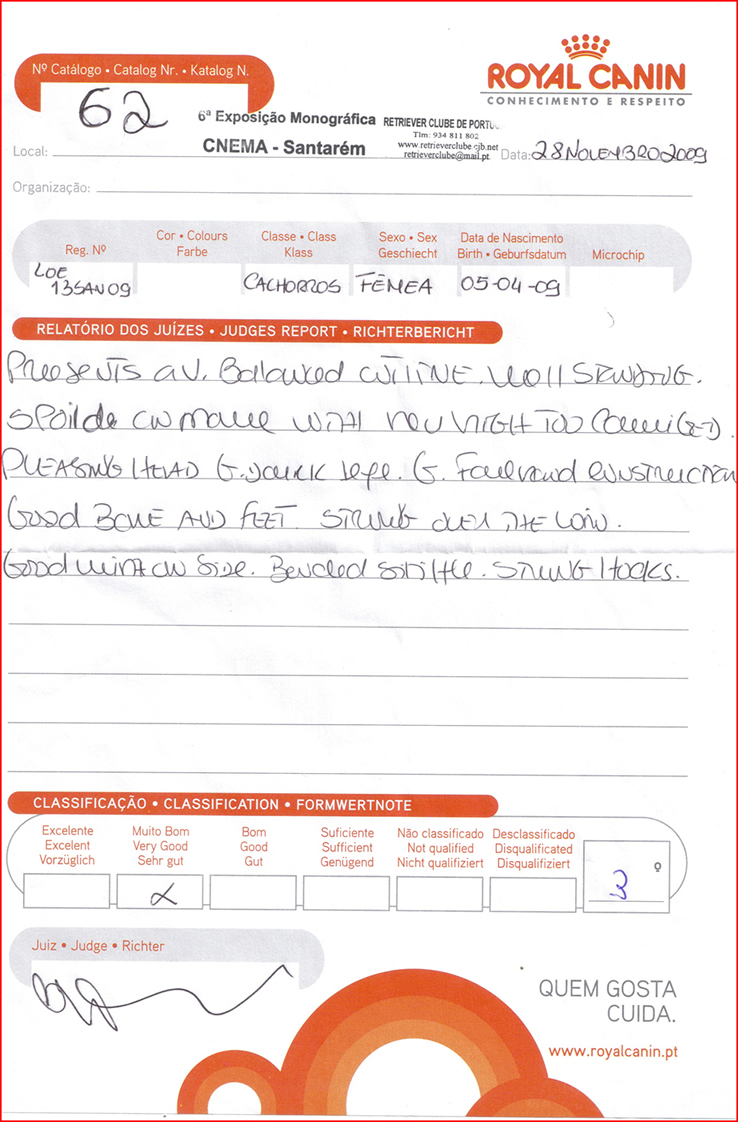 Nº Catálogo • Catalog Nr. • Katalog N.
62
ROYAL CANIN
CONHECIMENTO E RESPEITO
6ª Exposição Monográfica
CNEMA - Santarém
RETRIEVER CLUBE DE PORTU
Tlm: 934 811 802
www.retrieverclube.cjb.net
retrieverclube@mail.pt
Local:
Data: 28 NOVEMBRO 2009
Organização:
Reg. Nº
Cor • Colours
Farbe
Classe • Class
Klass
Sexo • Sex
Geschiecht
Data de Nascimento
Birth • Geburfsdatum
Microchip
LOE
135AN09
CACHORROS
FÊMEA
05-04-09
RELATÓRIO DOS JUÍZES • JUDGES REPORT • RICHTERBERICHT
Presents a V. Balanced outline. Well
on move with HIGH TOO
PLEASING HEAD G. DARK G. Forehand CONSTRUCTION
Good Bone AND FEET. STRONG OVER THE LOIN.
Good width on Side. Bended stifle. STRONG HOCKS.
CLASSIFICAÇÃO • CLASSIFICATION • FORMWERTNOTE
Excelente
Excelent
Vorzüglich
Muito Bom
Very Good
Sehr gut
Bom
Good
Gut
Suficiente
Sufficient
Genügend
Não classificado
Not qualified
Nicht qualifiziert
Desclassificado
Disqualificated
Disqualifiziert
3 º
Juiz • Judge • Richter
QUEM GOSTA
CUIDA.
www.royalcanin.pt